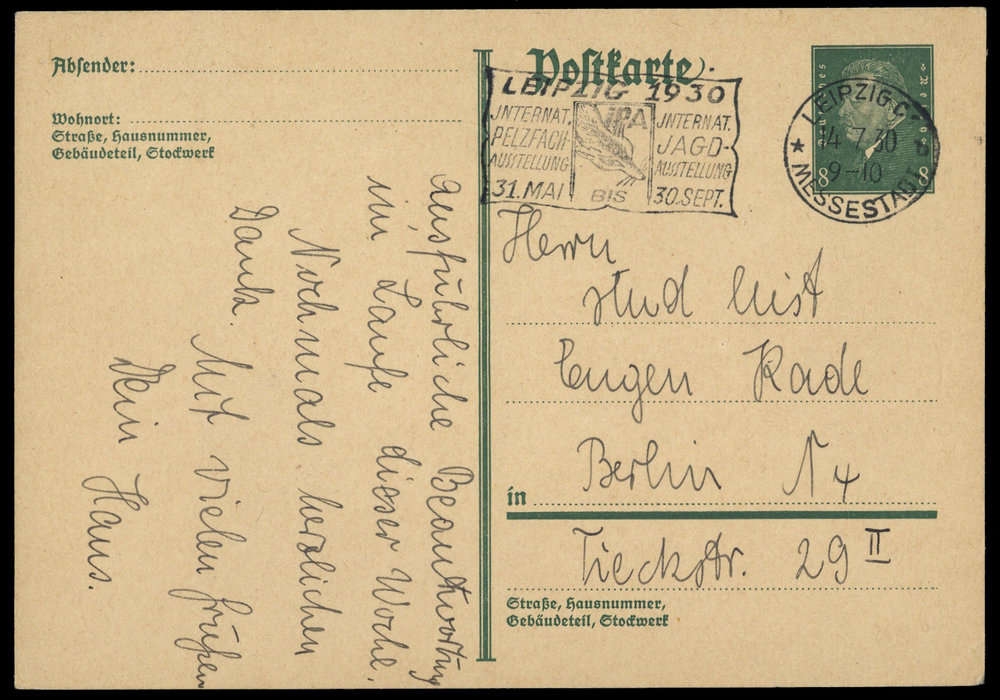 Absender:
Wohnort:
Straße, Hausnummer,
Gebäudeteil, Stockwerk
ausführliche Beantwortung
im Laufe dieser Woche.
Nochmals herzlichen
Dank.
Mit vielen Grüßen
Dein Hans.
Postkarte
LEIPZIG 1930
INTERNAT.
PELZFACH-
AUSSTELLUNG
31. MAI
IPA
BIS
INTERNAT.
JAGD-
AUSSTELLUNG
30. SEPT.
LEIPZIG C
14.7.30
9-10
MESSESTADT
8 8
Herrn
stud
Eugen Rade
in Berlin N 4
Tieckstr. 29 II
Straße, Hausnummer,
Gebäudeteil, Stockwerk